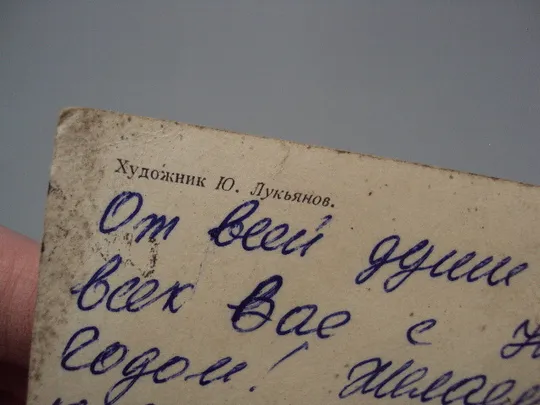 Художник Ю. Лукьянов.
От всей души
всех Вас с
годом! Желаем